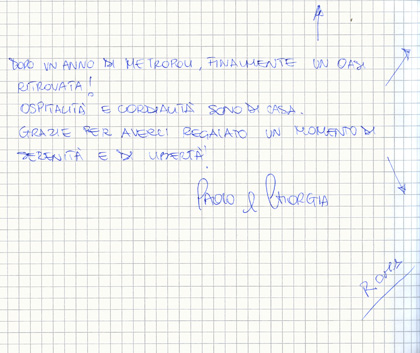 DOPO UN ANNO DI METROPOLI, FINALMENTE UN OASI
RITROVATA!
OSPITALITÀ E CORDIALITÀ SONO DI CASA.
GRAZIE PER AVERCI REGALATO UN MOMENTO DI
SERENITÀ E DI LIBERTÀ!
PAOLO e GIORGIA